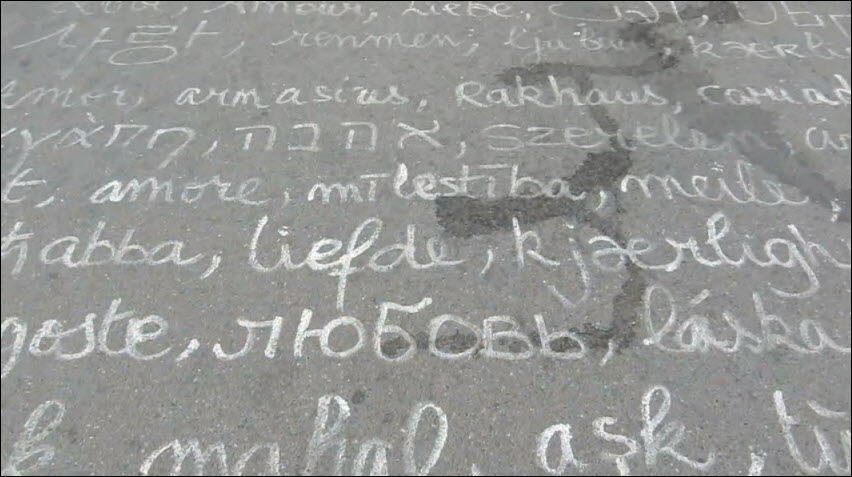 love, amour, Liebe,
사랑, renmen, ljubav, kærli
amor, armastus, Rakhaus, cariad
γάπη, אהבה, szerelem,
t, amore, mīlestība, meile,
ħabba, liefde, kjærligh
goste, любовь, láska
mahal, aşk, tì